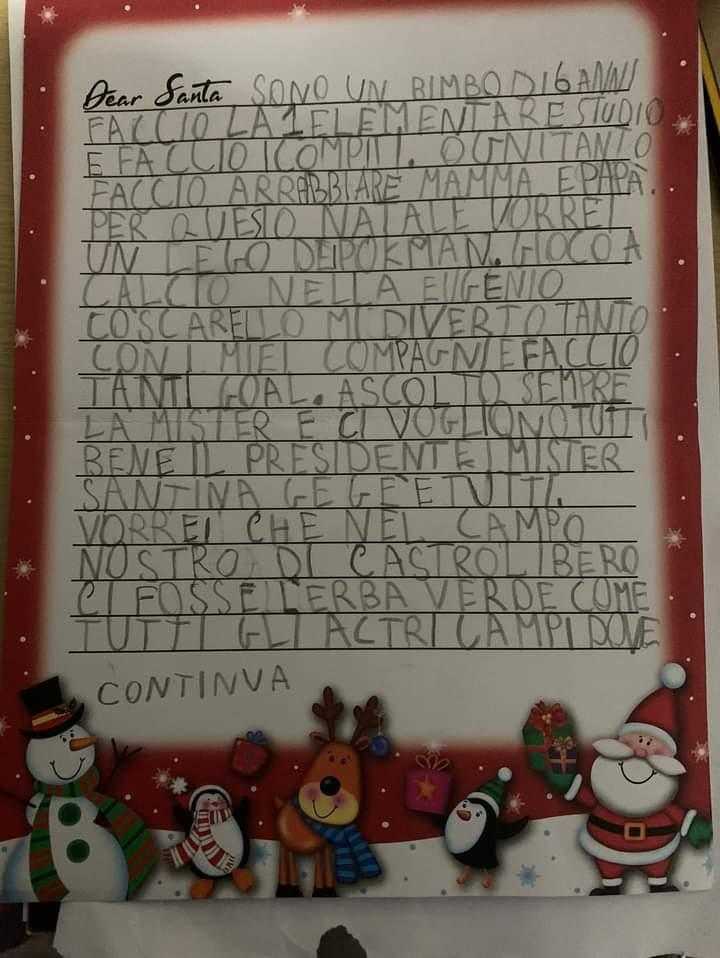 Dear Santa SONO UN BIMBO DI 6 ANNI
FACCIO LA 1 ELEMENTARE STUDIO
E FACCIO I COMPITI. OGNI TANTO
FACCIO ARRABBIARE MAMMA E PAPÀ.
PER QUESTO NATALE VORREI
UN LEGO DEI POKMAN. GIOCO A
CALCIO NELLA EUGENIO
COSCARELLO MI DIVERTO TANTO
CON I MIEI COMPAGNI E FACCIO
TANTI GOAL. ASCOLTO SEMPRE
LA MISTER E CI VOGLIONO TUTTI
BENE IL PRESIDENTE I MISTER
SANTINA GE GE E TUTTI.
VORREI CHE NEL CAMPO
NOSTRO DI CASTROLIBERO
CI FOSSE L'ERBA VERDE COME
TUTTI GLI ALTRI CAMPI DOVE
CONTINUA